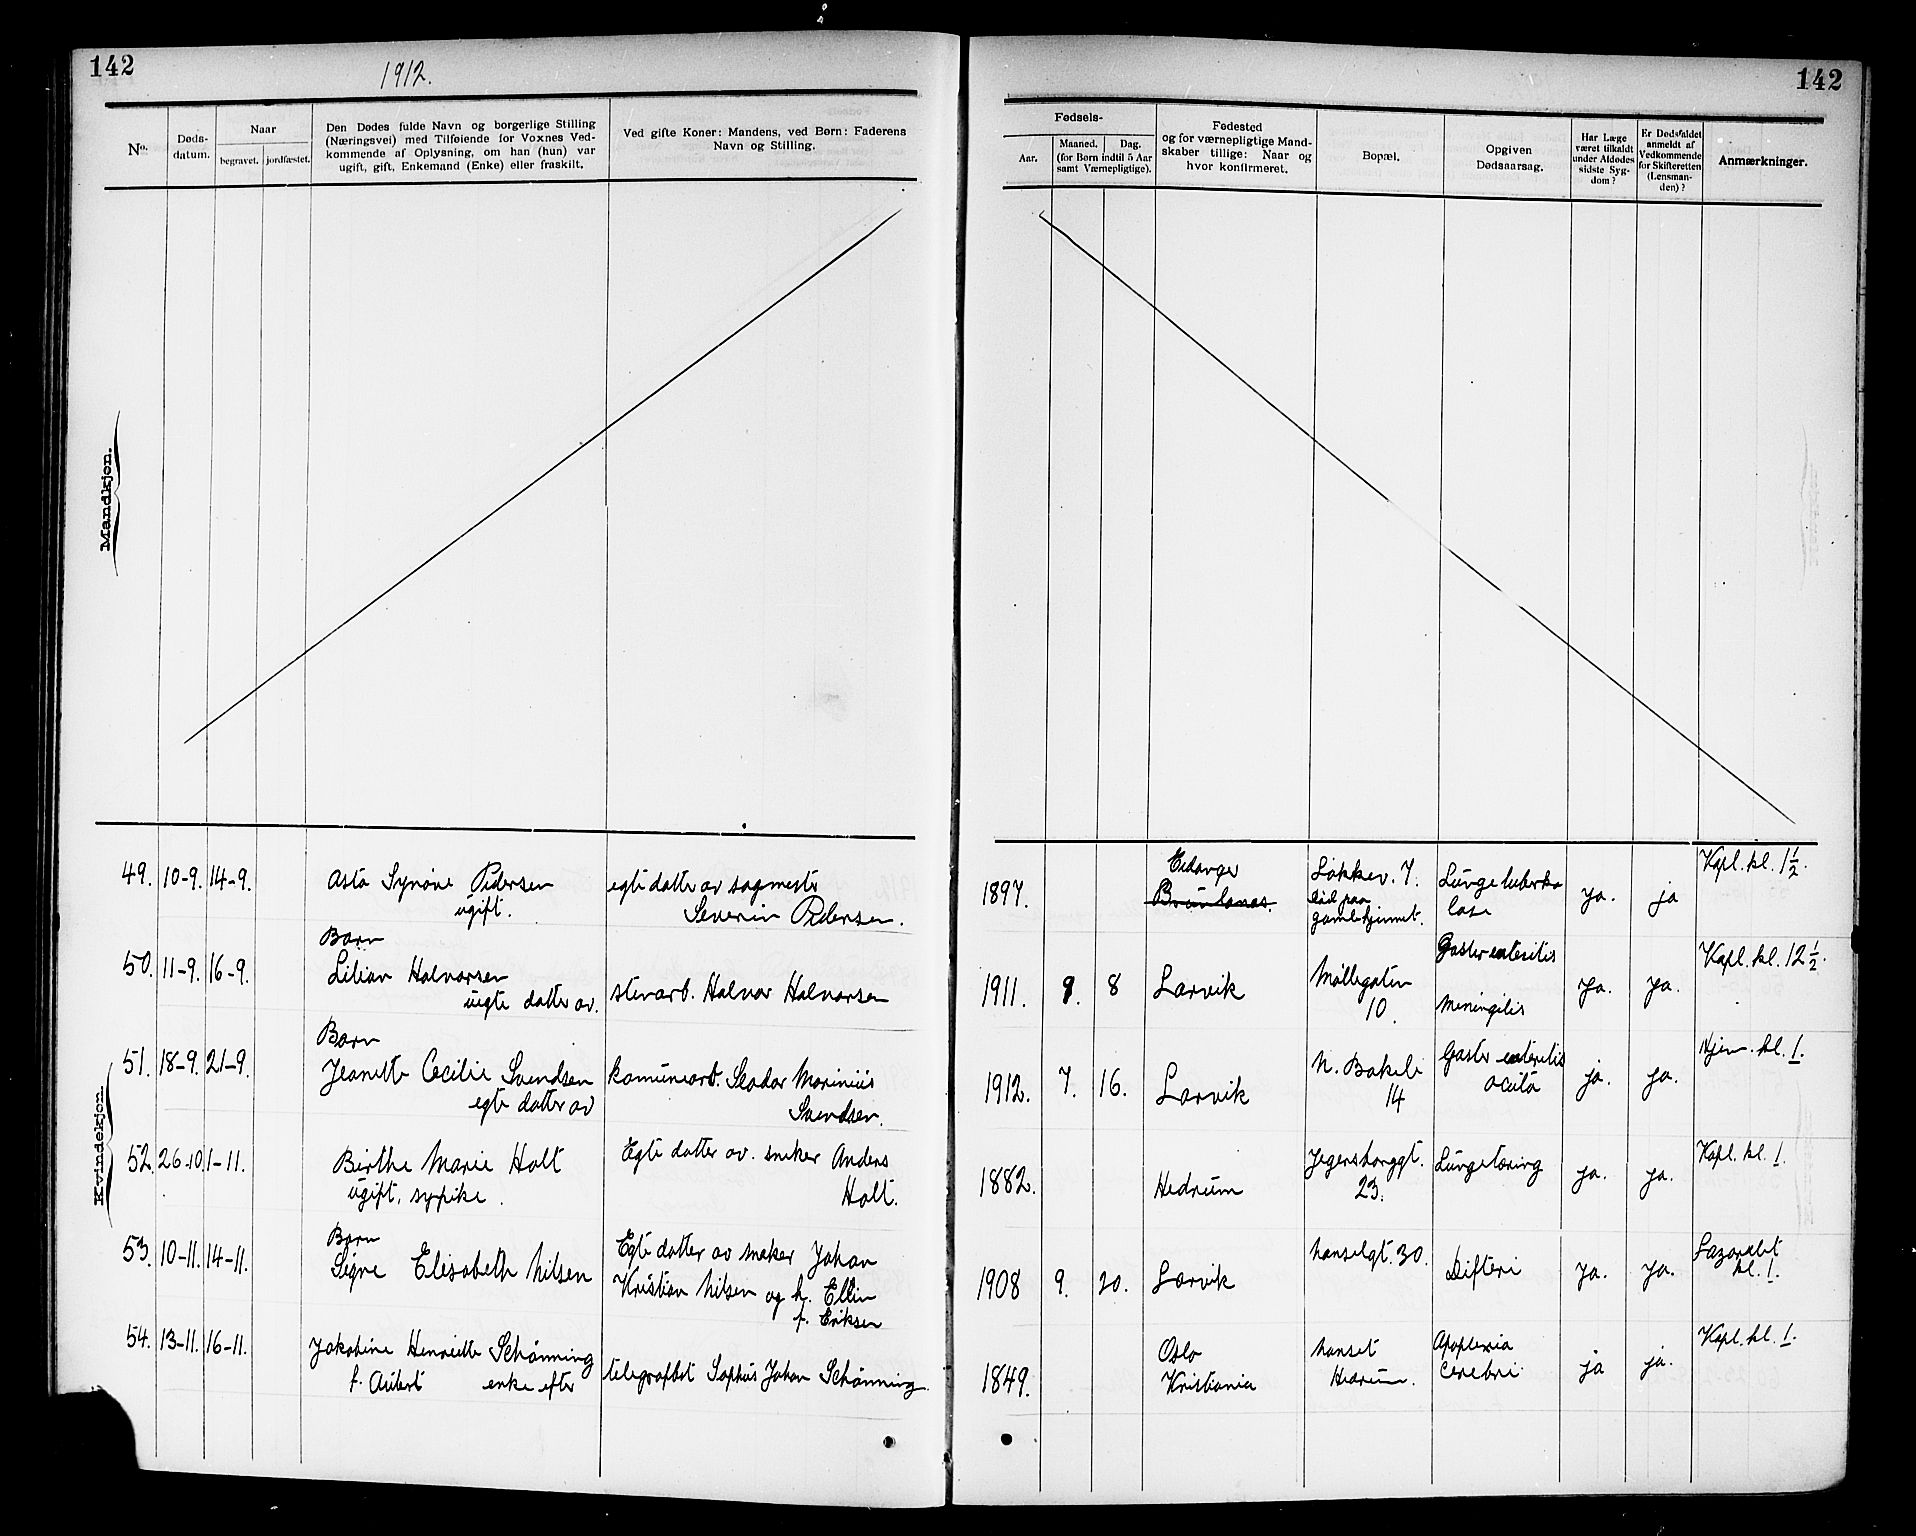 142
1912.
142
No.
Døds-
datum.
Naar
begravet.
jordfæstet.
Den Dødes fulde Navn og borgerlige Stilling
(Næringsvei) med Tilføiende for Voxnes Ved-
kommende af Oplysning, om han (hun) var
ugift, gift, Enkemand (Enke) eller fraskilt.
Ved gifte Koner: Mandens, ved Børn: Faderens
Navn og Stilling.
Fødsels-
Aar.
Maaned. Dag.
(for Børn indtil 5 Aar
samt Værnepligtige).
Fødested
og for værnepligtige Mand-
skaber tillige: Naar og
hvor konfirmeret.
Bopæl.
Opgiven
Dødsaarsag.
Har Læge
været tilkaldt
under Afdødes
sidste Syg-
dom?
Er Dødsfaldet
anmeldt af
Vedkommende
for Skifteretten
(Lensman-
den)?
Anmærkninger.
Mandkjøn.
Kvindekjøn.
49. 10-9. 14-9.
Asta Synøve Pedersen
ugift.
egte datter av sagmester
Severin Pedersen.
1897.
Eidanger
Brunlanes.
Løkkev. 7.
død paa
gamlehjemmet.
Lungetuberku
lose
ja. ja
Kapl. kl. 1 1/2.
50. 11-9. 16-9.
Barn
Lilian Halvorsen
uegte datter av.
stenarb. Halvor Halvorsen
1911. 9. 8
Larvik
Møllegaten
10.
Gastroenteritis
Meningitis
ja. ja.
Kapl. kl. 12 1/2.
51. 18-9. 21-9.
Barn
Jeanette Cecilie Svendsen
egte datter av
komunearb. Teodor Marinius
Svendsen.
1912. 7. 16.
Larvik
N. Bakeli
14
Gastro enteritis
acuta
ja. ja.
Hjem. kl. 1.
52. 26-10 1-11.
Birthe Marie Holt
ugift, sypike.
Egte datter av. sneker Anders
Holt.
1882.
Hedrum
Jegersborggt.
23.
Lungetæring
ja. ja.
Kapl. kl. 1.
53. 10-11. 14-11.
Barn
Signe Elisabeth Nilsen
Egte datter av sneker Johan
Kristian Nilsen og h. Ellin
f. Eriksen
1908 9. 20.
Larvik
Nanselgt. 30.
Difteri
ja. ja.
Lazarettet
kl. 1.
54. 13-11. 16-11.
Jakobine Henriette Schønning
f. Aubert enke efter
telegrafbst Sophus Johan Schønning.
1849.
Oslo
Kristiania
Nanset
Hedrum.
Apoplexia
Cerebri
ja ja.
Kapl. kl. 1.